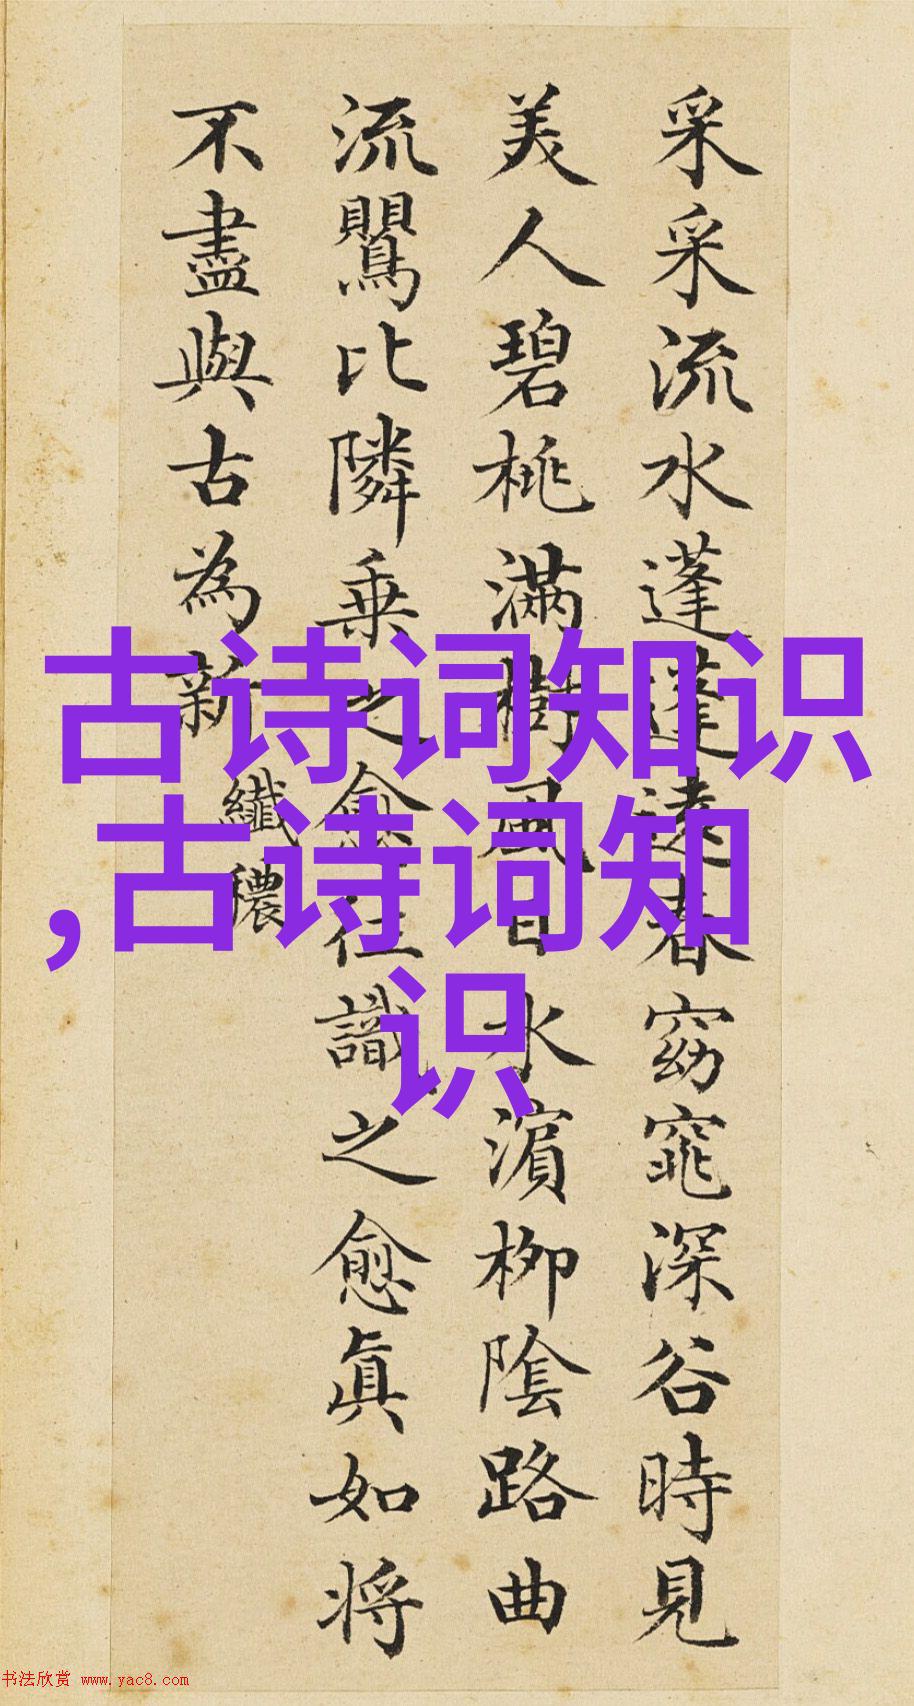 采采流水蓬蓬遠春窈窕深谷時見
美人碧桃滿樹風日水濵柳陰路曲
流鸎比隣乗之愈往識之愈真如将
不盡與古為新
纖穠
古诗词知识
,古诗词知
识
书法欣赏 www.yac8.com